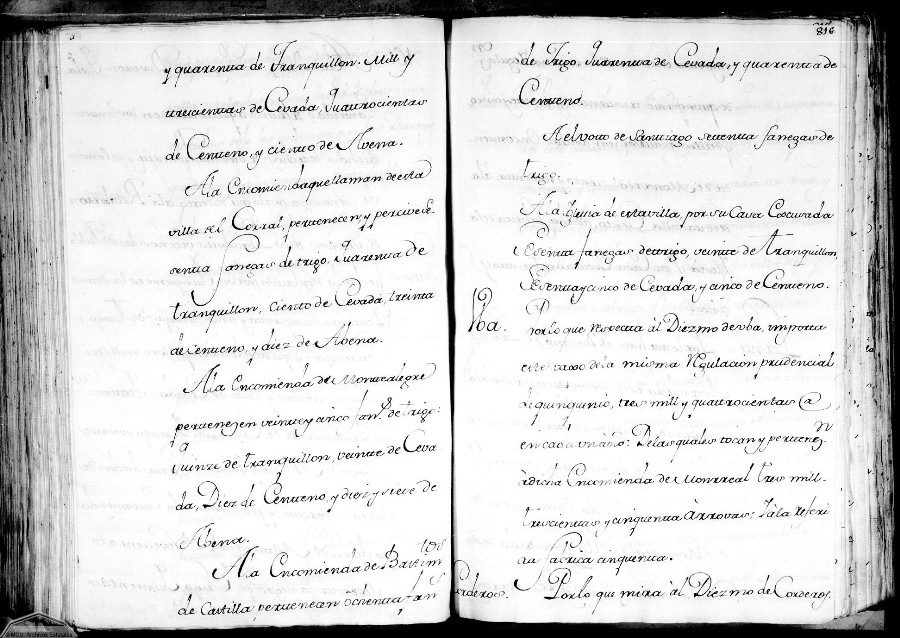 y quarenta de Tranquillon. Mill y
trescientas de Cevada, Quatrocientas
de Centeno, y ciento de Abena.
A la Encomienda que llaman de esta
villa del Corral, pertenecen, y percive Se-
senta fanegas de trigo, Quarenta de
tranquillon, ciento de Cevada, treinta
de centeno, y diez de Abena.
A la Encomienda de Montealegre
pertenezen veinte y cinco fan.s de trigo:
Quinze de tranquillon, veinte de Ceva
da, Diez de Centeno, y diez y siete de
Abena.
A la Encomienda de Bastim.tos
de Castilla pertenecen ochenta fan.s
816
de Trigo, Quarenta de Cevada, y quarenta de
Centeno.
Al voto de Santiago setenta fanegas de
trigo.
A la Iglesia de esta villa, por su Casa Escusada
Sesenta fanegas de trigo, veinte de tranquillon,
Sesenta y cinco de Cevada, y cinco de Centeno.
Uba.
Por lo que respecta al Diezmo de uba, importa
este ramo de la misma regulacion prudencial
de quinquenio, tres mill y quatrocientas @
en cada un año: De las quales tocan y pertenez.n
à dicha Encomienda de Montreal tres mill
trescientas y cinquenta àrrovas; Y à la referi
da fabrica cinquenta.
Corderos.
Por lo que mira àl Diezmo de Corderos.
© MCU. Archivos Estatales